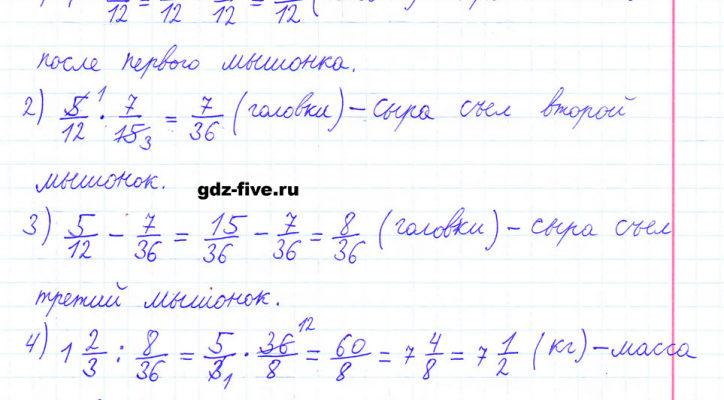 12 12 12 12
после первого мышонка.
2) 5/12 1 · 7/15 3 = 7/36 (головки) – сыра съел второй
мышонок.
gdz-five.ru
3) 5/12 – 7/36 = 15/36 – 7/36 = 8/36 (головки) – сыра съел
третий мышонок.
4) 1 2/3 : 8/36 = 5/3 1 · 36 12/8 = 60/8 = 7 4/8 = 7 1/2 (кг) – масса